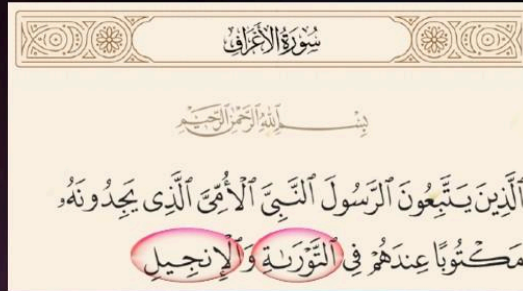 سُورَةُ الأَعْرَافِ
بِسْمِ ٱللَّهِ ٱلرَّحْمَٰنِ ٱلرَّحِيمِ
ٱلَّذِينَ يَتَّبِعُونَ ٱلرَّسُولَ ٱلنَّبِيَّ ٱلْأُمِّيَّ ٱلَّذِى يَجِدُونَهُۥ
مَكْتُوبًا عِندَهُمْ فِى ٱلتَّوْرَىٰةِ وَٱلْإِنجِيلِ